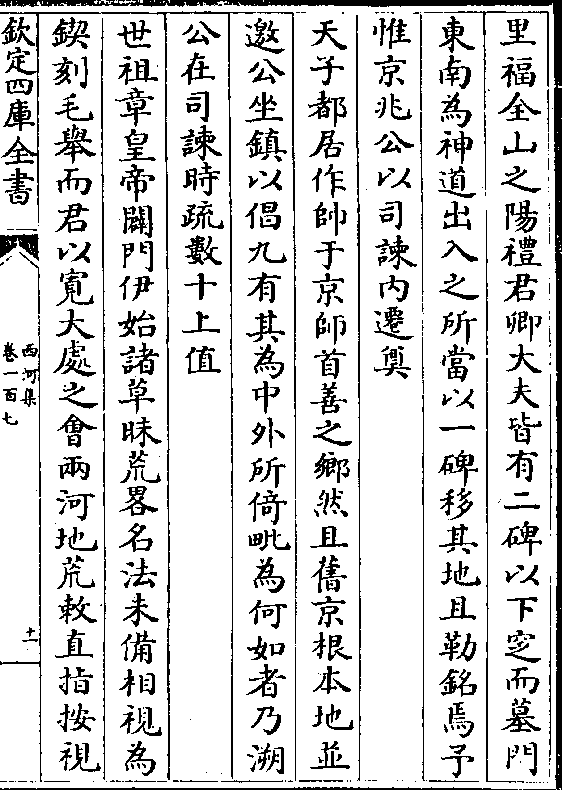 里福全山之陽禮君卿大夫皆有二碑以下窆而墓門
東南為神道出入之所當以一碑移其地且勒銘焉予
惟京兆公以司諫内遷奠
天子都居作帥于京師首善之鄉然且舊京根本地並
邀公坐鎮以倡九有其為中外所倚毗為何如者乃溯
公在司諫時疏數十上值
世祖章皇帝闢門伊始諸草昧荒畧名法未備相視為
鍥刻毛舉而君以寛大處之會兩河地荒敕直指按視
欽定四庫全書
西河集
卷一百七
十一